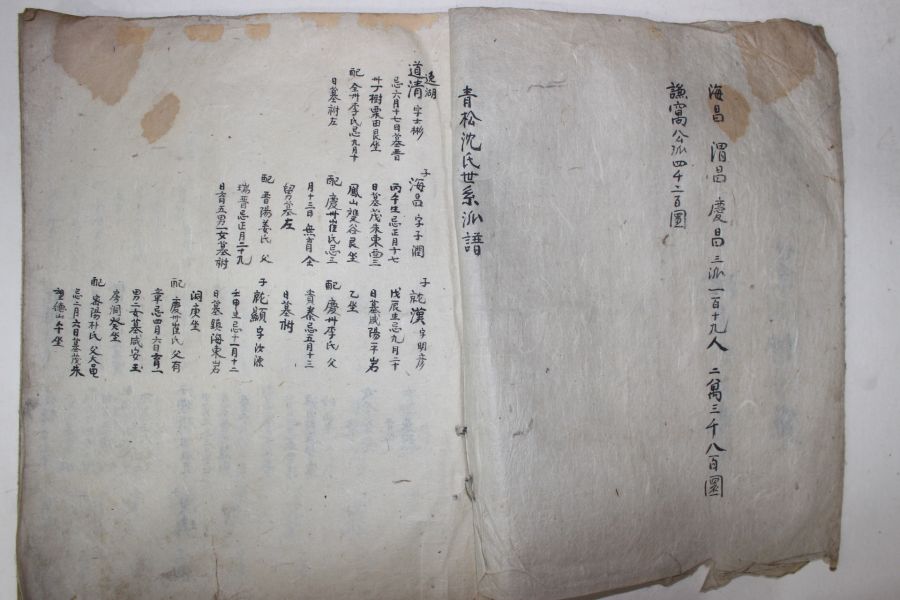 海昌 渭昌 慶昌 三派 一百十九人 二萬三千八百圜
謙窩公派四千二百圜
青松沈氏世系派譜
逸湖
道清 字士彬
忌六月十七日墓晋
卅丁樹粟田艮坐
配 全州李氏忌九月十
日墓祔左
子
海昌 字子潤
丙午生忌正月十七
日墓茂朱東面三
鳳山 谷艮坐
配 慶州崔氏忌三
月十三日 無育全
男墓左
配 晋陽姜氏 父
瑞晋忌正月二十九
日育五男一女墓祔
子 就漢 字明彦
戊辰生忌九月二十
日墓咸陽平岩
乙坐
配 慶州李氏 父
貴秦忌五月十三
日墓祔
子 就顯 字汝源
壬申生忌十一月十二
日墓鎮海東岩
洞庚坐
配 慶州崔氏 父有
章忌四月六日育一
男二女墓咸安玉
房洞癸坐
配 密陽朴氏 父大
忌二月六日墓茂朱
望德山午坐